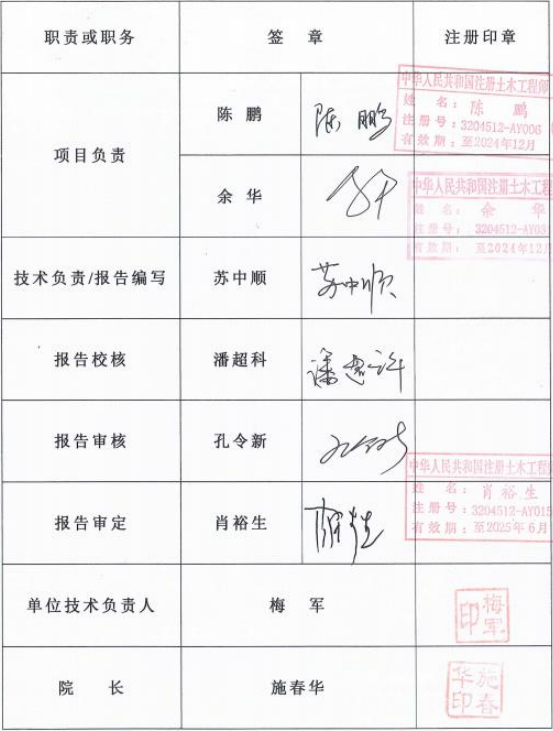 职责或职务 签 章 注册印章
项目负责
陈 鹏 陈鹏
中华人民共和国注册土木工程师
姓 名：陈 鹏
注册号：3204512-AY006
有效期：至2024年12月
余 华
中华人民共和国注册土木工程
姓 名：余 华
注册号：3204512-AY03
有效期：至2024年12月
技术负责/报告编写 苏中顺 苏中顺
报告校核 潘超科
报告审核 孔令新
报告审定 肖裕生
中华人民共和国注册土木工程师
姓 名：肖裕生
注册号：3204512-AY015
有效期：至2025年6月
单位技术负责人 梅 军
梅军印
院 长 施春华
施春华印